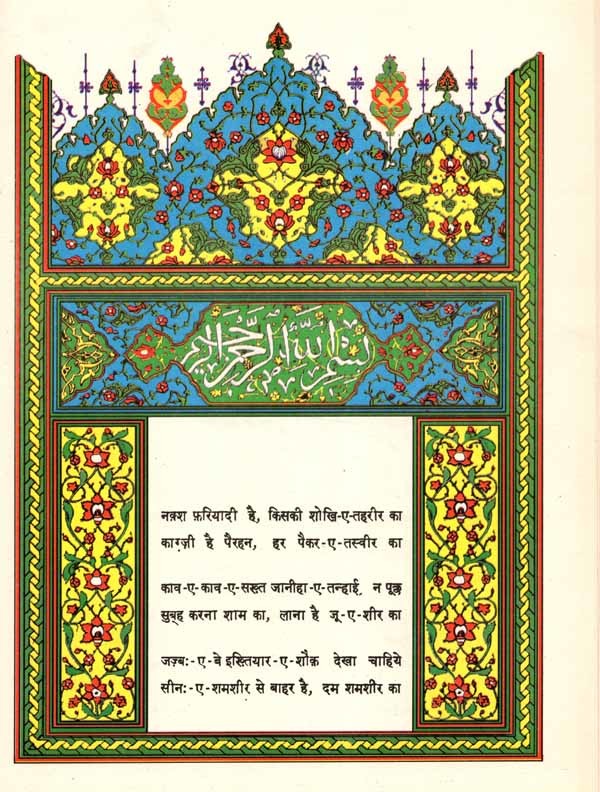 بسم الله الرحمن الرحيم
नक़्श फ़रियादी है, किसकी शोख़ि-ए-तहरीर का
काग़ज़ी है पैरहन, हर पैकर-ए-तस्वीर का
काव-ए-काव-ए-सख़्त जानीहा-ए-तन्हाई, न पूछ
सुब्ह करना शाम का, लाना है जू-ए-शीर का
जज़्बः-ए-बे इख़्तियार-ए-शौक़ देखा चाहिये
सीनः-ए-शमशीर से बाहर है, दम शमशीर का